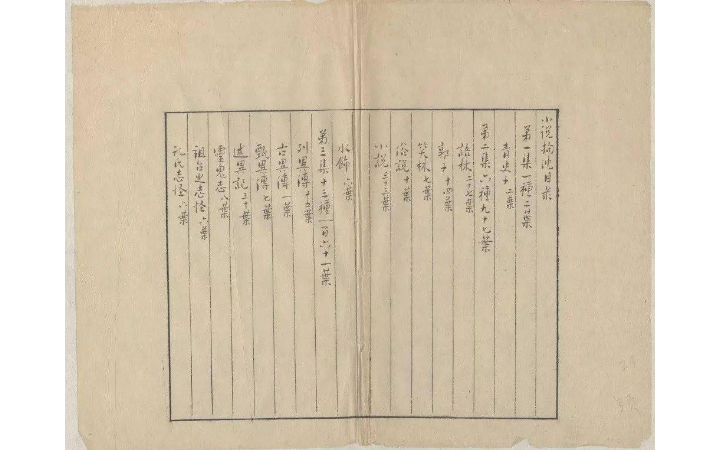 小说鉤沈目录
第一集一種二葉
青史子二葉
第二集六種九十七葉
語林二十七葉
郭子十四葉
笑林七葉
俗說十葉
小說三十三葉
水飾六葉
第三集十三種一百六十一葉
列異傳十五葉
古異傳一葉
甄異傳七葉
述異記三十葉
靈鬼志八葉
祖台之志怪六葉
孔氏志怪六葉